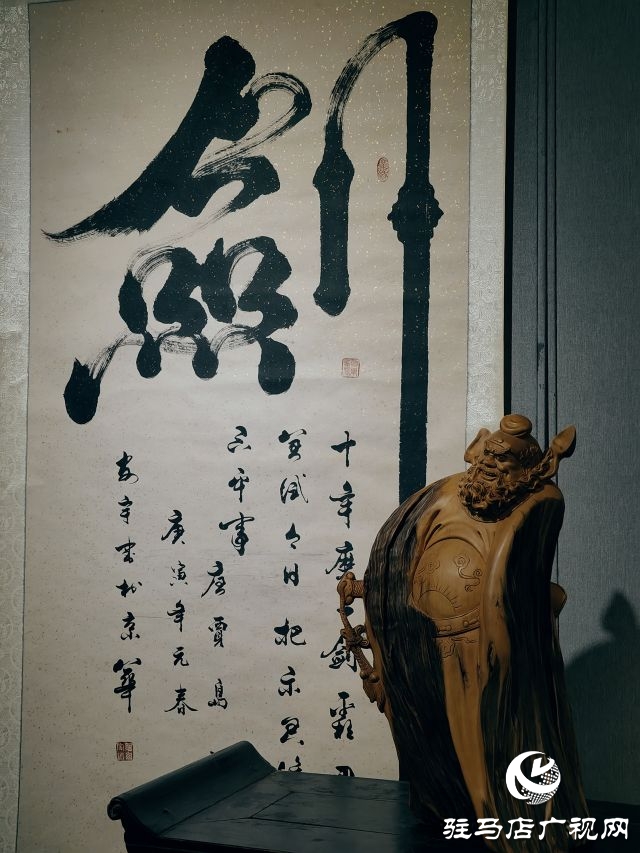 劍
十年磨一劍霜刃
曾試今日把示君誰
不平事
唐賈島
庚寅年元春
書於京華
驻马店广视网